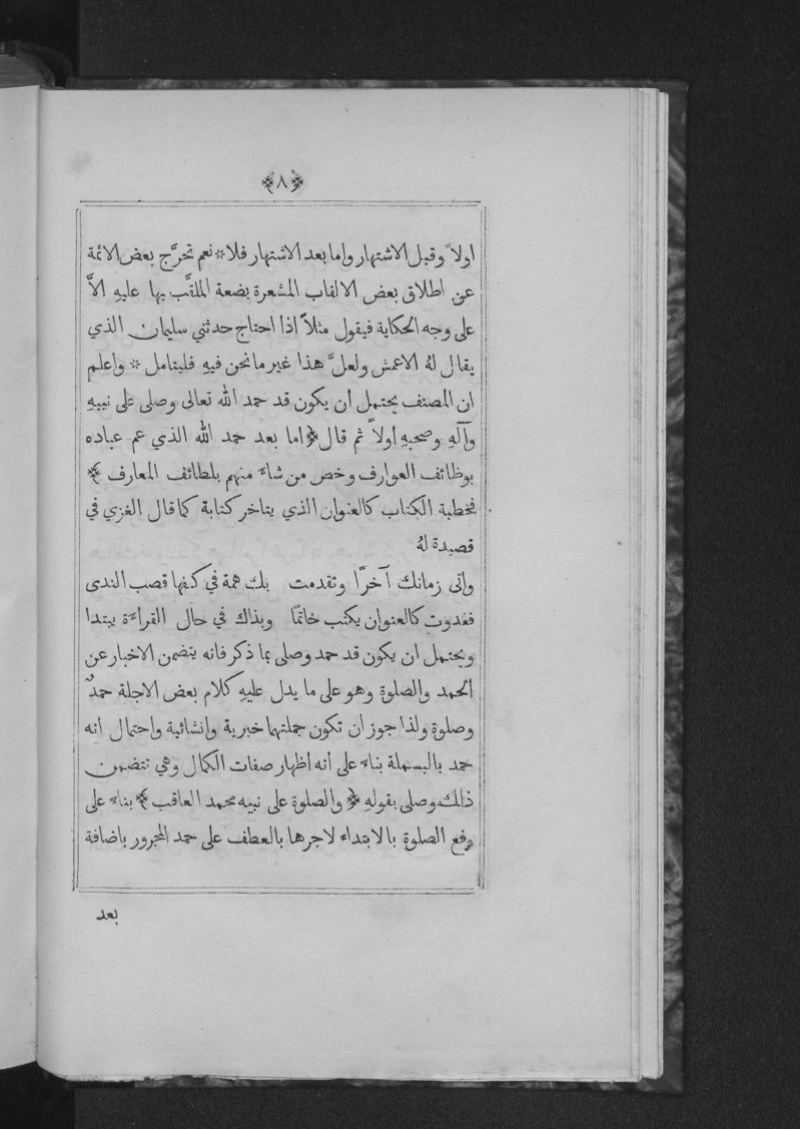 ﴿٨﴾
اولاً وقبل الاشتهار واما بعد الاشتهار فلا * نعم تحرَّج بعض الائمة
عن اطلاق بعض الالقاب المشعرة بضعة الملقَّب بها عليهِ الاَّ
على وجه الحكاية فيقول مثلاً اذا احتاج حدثني سليمان الذي
يقال لهُ الاعمش ولعلَّ هذا غير ما نحن فيهِ فليتامل * واعلم
ان المصنف يحتمل ان يكون قد حمد الله تعالى وصلى على نبيهِ
وآلهِ وصحبهِ اولاً ثم قال ﴿ اما بعد حمد الله الذي عم عباده
بوظائف العوارف وخص من شاء منهم بلطائف المعارف ﴾
فخطبة الكتاب كالعنوان الذي يتاخر كتابة كما قال الغزي في
قصيدة لهُ
واتى زمانك آخرًا وتقدمت بك همة في كفها قصب الندى
فغدوت كالعنوان يكتب خاتمًا وبذاك في حال القراءة يبتدا
ويحتمل ان يكون قد حمد وصلى بما ذكر فانه يتضمن الاخبار عن
الحمد والصلوة وهو على ما يدل عليهِ كلام بعض الاجلة حمدٌ
وصلوة ولذا جوز ان تكون جملتهما خبرية وانشائية واحتمال انه
حمد بالبسملة بناء على انه اظهار صفات الكمال وهي تتضمن
ذالك وصلى بقولهِ ﴿ والصلوة على نبيه محمد العاقب ﴾ بناء على
رفع الصلوة بالابتداء لا جرها بالعطف على حمد المجرور باضافة
بعد